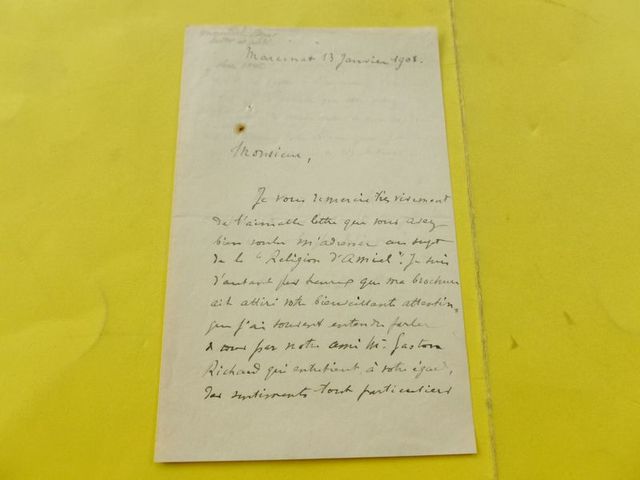 13 Janvier 1908.
Monsieur,
Je vous remercie très vivement
de l'aimable lettre que vous avez
bien voulu m'adresser au sujet
de la "Religion d'Amiel". Je suis
d'autant plus heureux que ma brochure
ait attiré votre bienveillante attention,
que j'ai souvent entendu parler
de vous par notre ami M. Gaston
Richard qui entretient à votre égard,
des sentiments tout particuliers